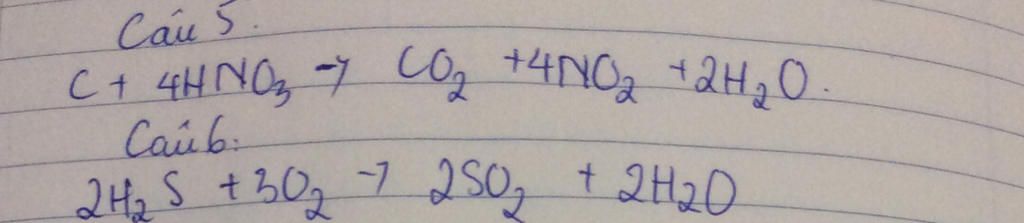 Câu 5.
C + 4HNO₃ → CO₂ + 4NO₂ + 2H₂O.
Câu 6:
2H₂S + 3O₂ → 2SO₂ + 2H₂O